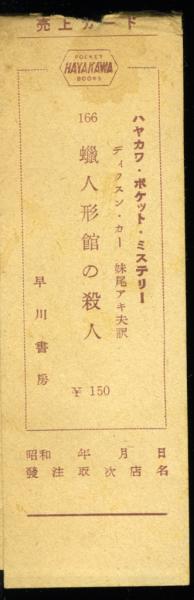 売上カード
POCKET
HAYAKAWA
BOOKS
ハヤカワ・ポケット・ミステリー
166
蠟人形館の殺人
ディクスン・カー 妹尾アキ夫訳
早川書房
¥150
昭和 年 月 日
發注取次店名